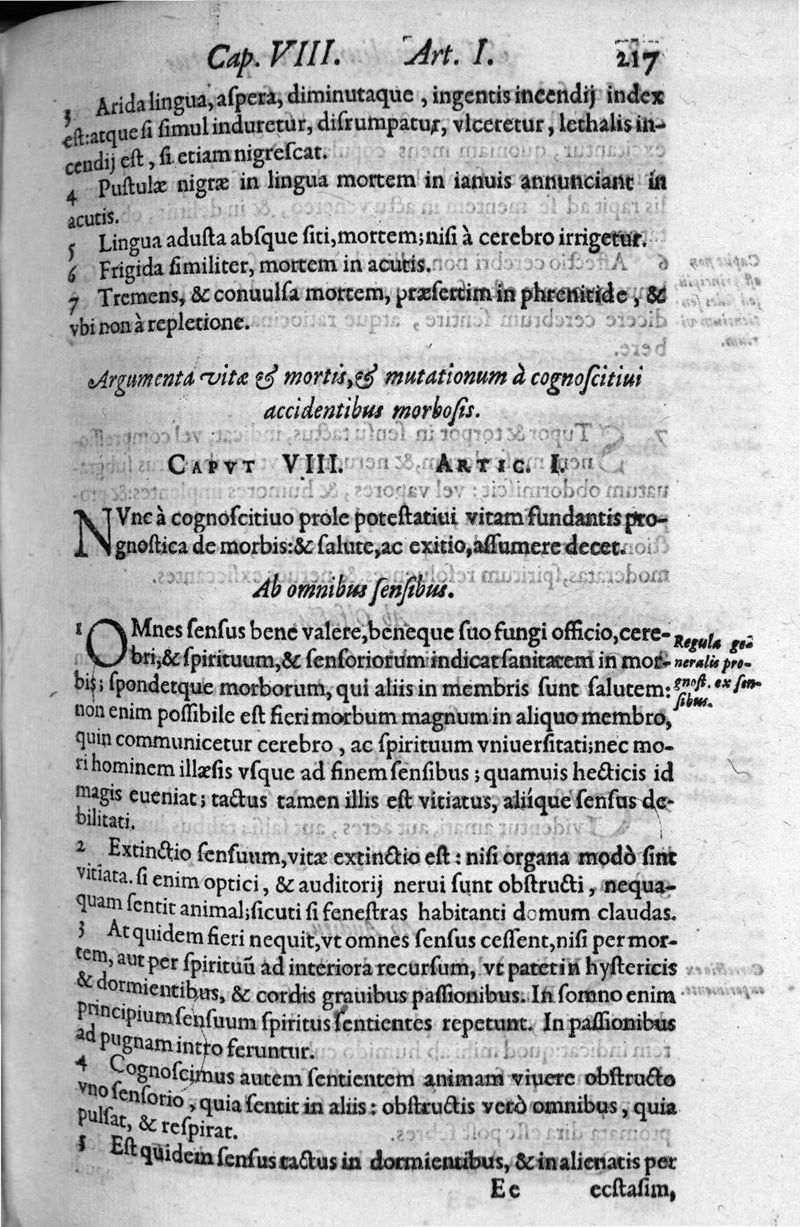 Cap. VIII. Art. I. 217
3 Arida lingua, aſpera, diminutaque, ingentis incendij index
eſt: atque ſi ſimul induretur, diſrumpatur, vlceretur, lethalis in-
cendij eſt, ſi etiam nigreſcat.
4 Puſtulæ nigræ in lingua mortem in ianuis annunciant in
acutis.
5 Lingua aduſta abſque ſiti, mortem; niſi à cerebro irrigetur.
6 Frigida ſimiliter, mortem in acutis.
7 Tremens, & conuulſa mortem, præſertim in phrenitide, &
vbi non à repletione.
Argumenta vitæ & mortis, & mutationum à cognoſcitiui
accidentibus morboſis.
CAPVT VIII. ARTIC. I.
NVnc à cognoſcitiuo prole poteſtatiui vitam fundantis pro-
gnoſtica de morbis: & ſalute, ac exitio, aſſumere decet.
Ab omnibus ſenſibus.
1 OMnes ſenſus bene valere, beneque ſuo fungi officio, cere-
bri, & ſpirituum, & ſenſoriorum indicat ſanitatem in mor-
bis; ſpondetque morborum, qui aliis in membris ſunt ſalutem:
non enim poſſibile eſt fieri morbum magnum in aliquo membro,
quin communicetur cerebro, ac ſpirituum vniuerſitati; nec mo-
ri hominem illæſis vſque ad finem ſenſibus; quamuis hecticis id
magis eueniat; tactus tamen illis eſt vitiatus, aliique ſenſus de-
bilitati.
Regula ge-
neralis pro-
gnoſt. ex ſen-
ſibus.
2 Extinctio ſenſuum, vitæ extinctio eſt: niſi organa modò ſint
vitiata. ſi enim optici, & auditorij nerui ſunt obſtructi, nequa-
quam ſentit animal; ſicuti ſi feneſtras habitanti domum claudas.
3 At quidem fieri nequit, vt omnes ſenſus ceſſent, niſi per mor-
tem, aut per ſpirituū ad interiora recurſum, vt patet in hyſtericis
& dormientibus, & cordis grauibus paſſionibus. In ſomno enim
principium ſenſuum ſpiritus ſentientes repetunt. In paſſionibus
ad pugnam intro feruntur.
4 Cognoſcimus autem ſentientem animam viuere obſtructo
vno ſenſorio, quia ſentit in aliis: obſtructis verò omnibus, quia
pulſat, & reſpirat.
5 Eſt quidem ſenſus tactus in dormientibus, & in alienatis per
Ee ecſtaſim,